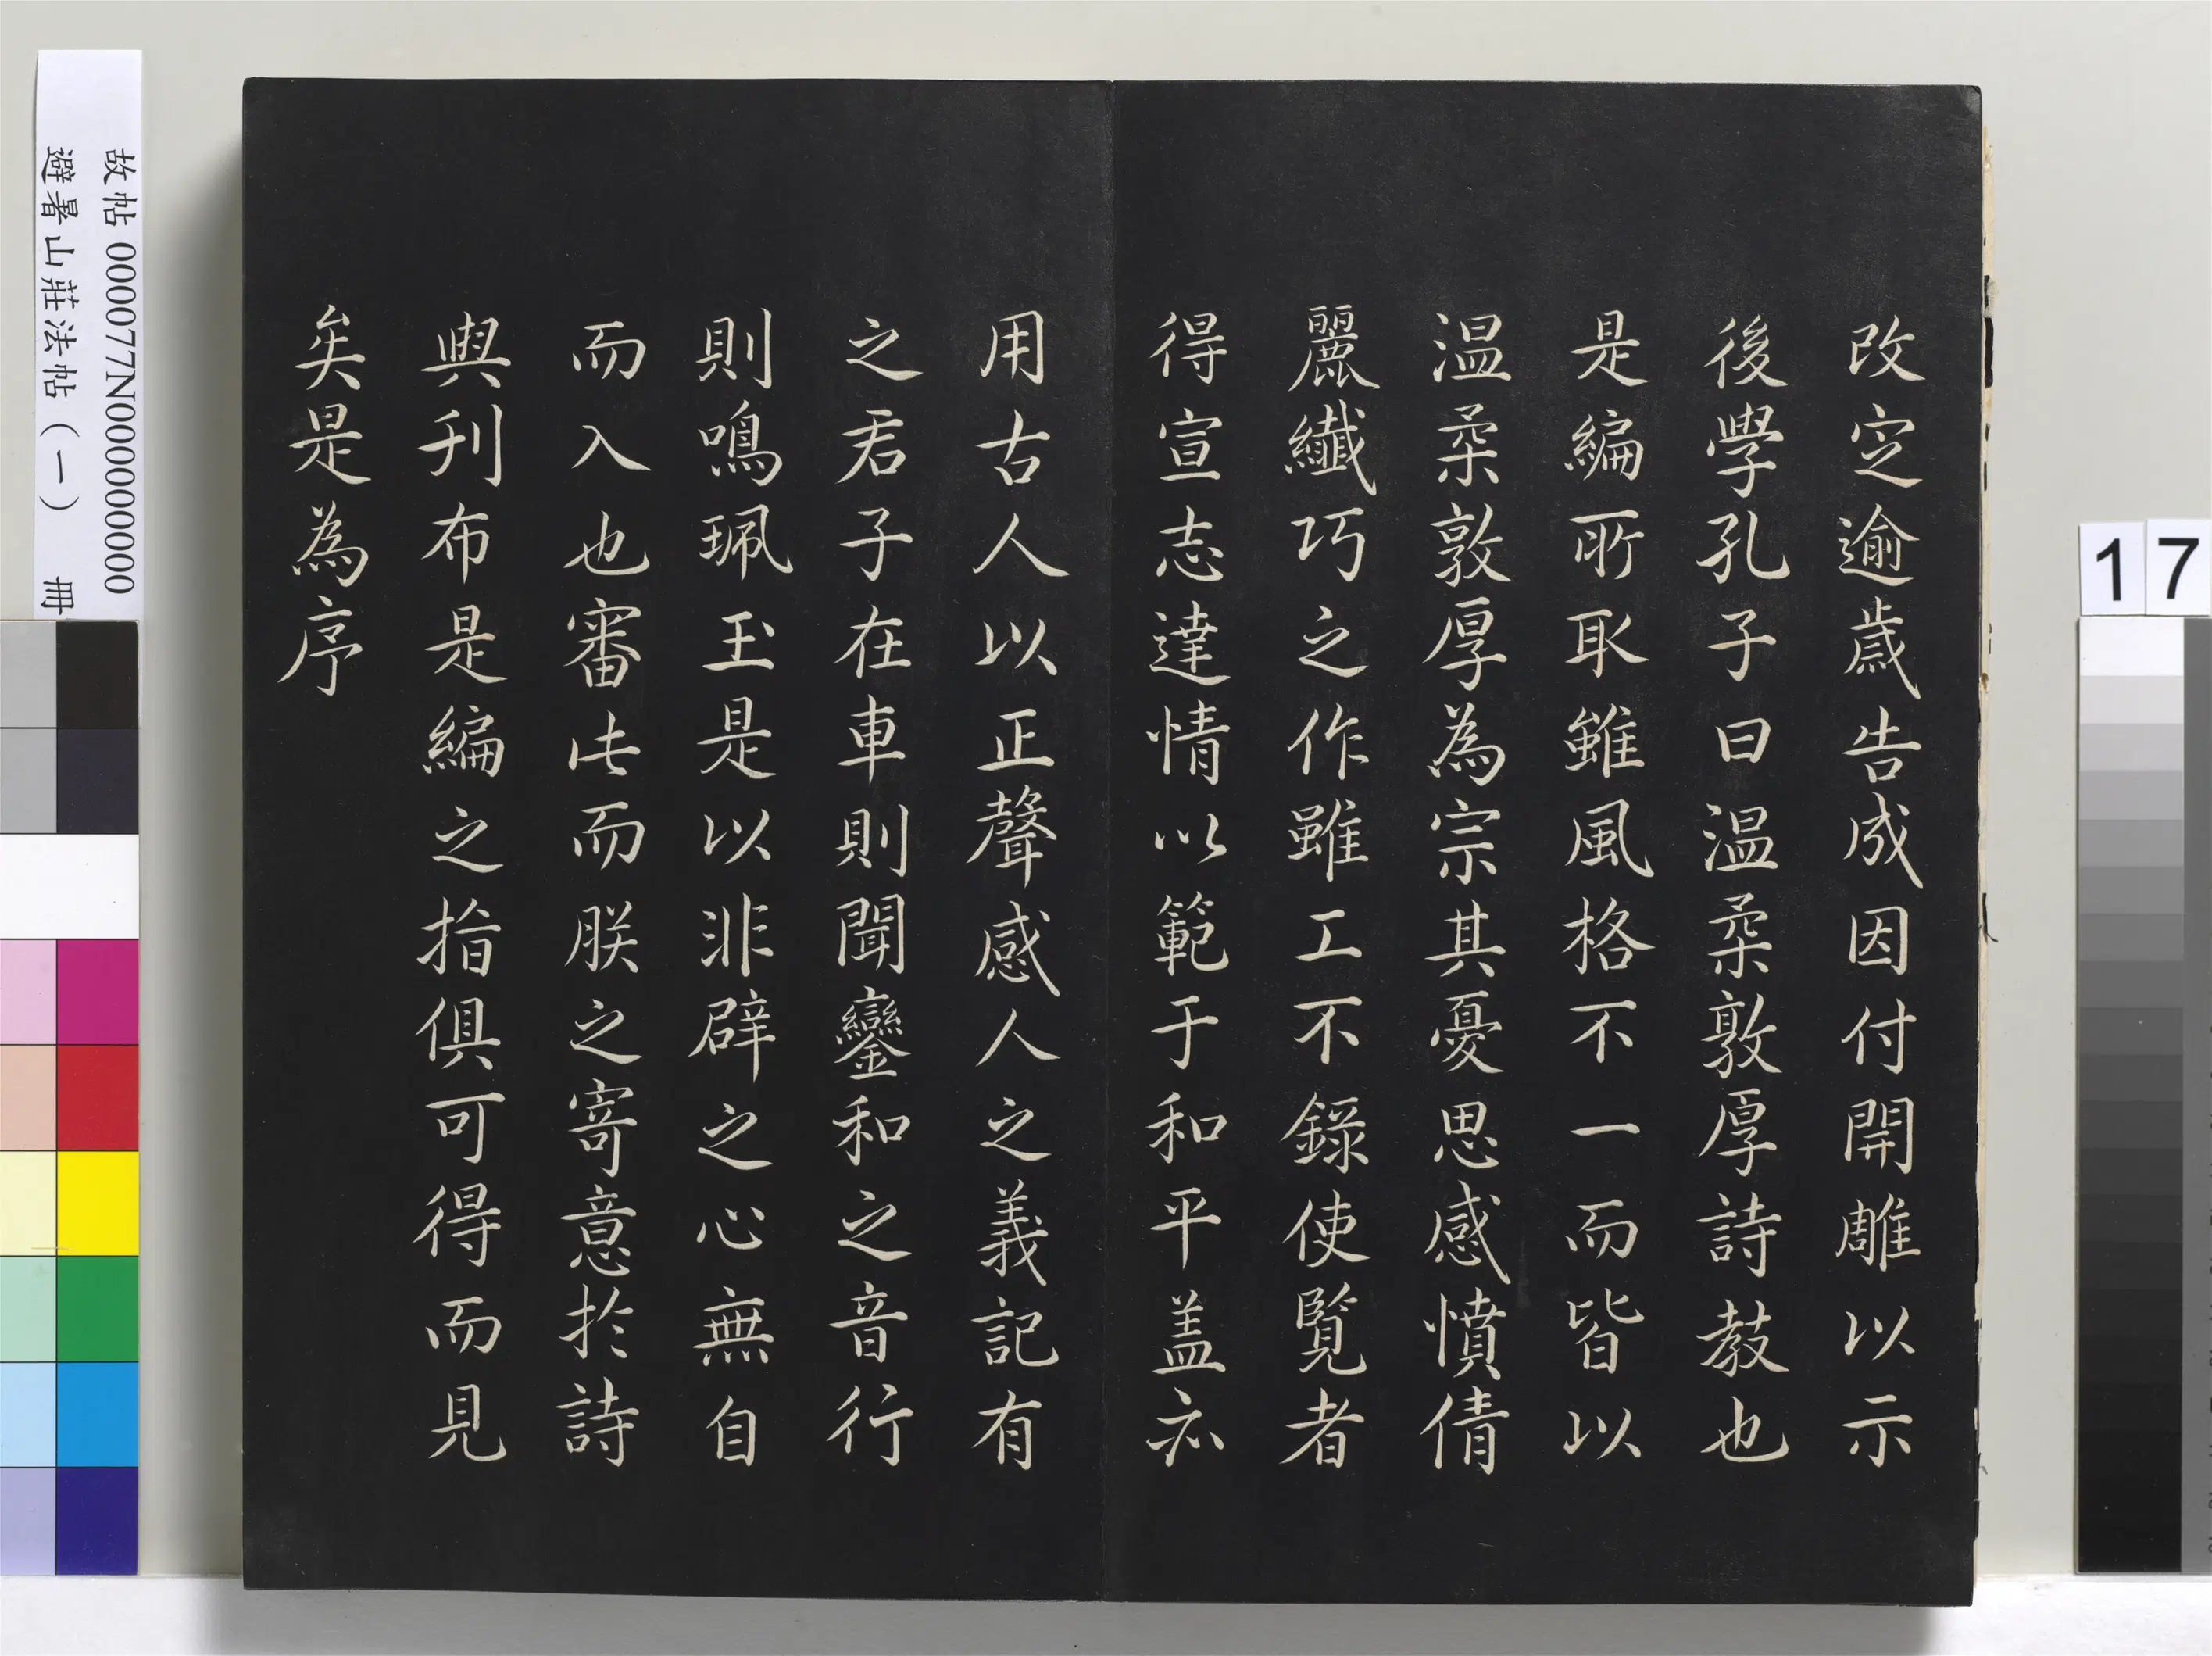 改定逾歲告成因付開雕以示
後學孔子曰溫柔敦厚詩教也
是編所取雖風格不一而皆以
溫柔敦厚為宗其憂思感憤倩
麗纖巧之作雖工不錄使覽者
得宣志達情以範于和平蓋亦
用古人以正聲感人之義記有
之君子在車則聞鑾和之音行
則鳴珮玉是以非辟之心無自
而入也審此而朕之寄意於詩
與刊布是編之指俱可得而見
矣是為序
故帖 000077N000000000
避暑山莊法帖(一) 冊
17